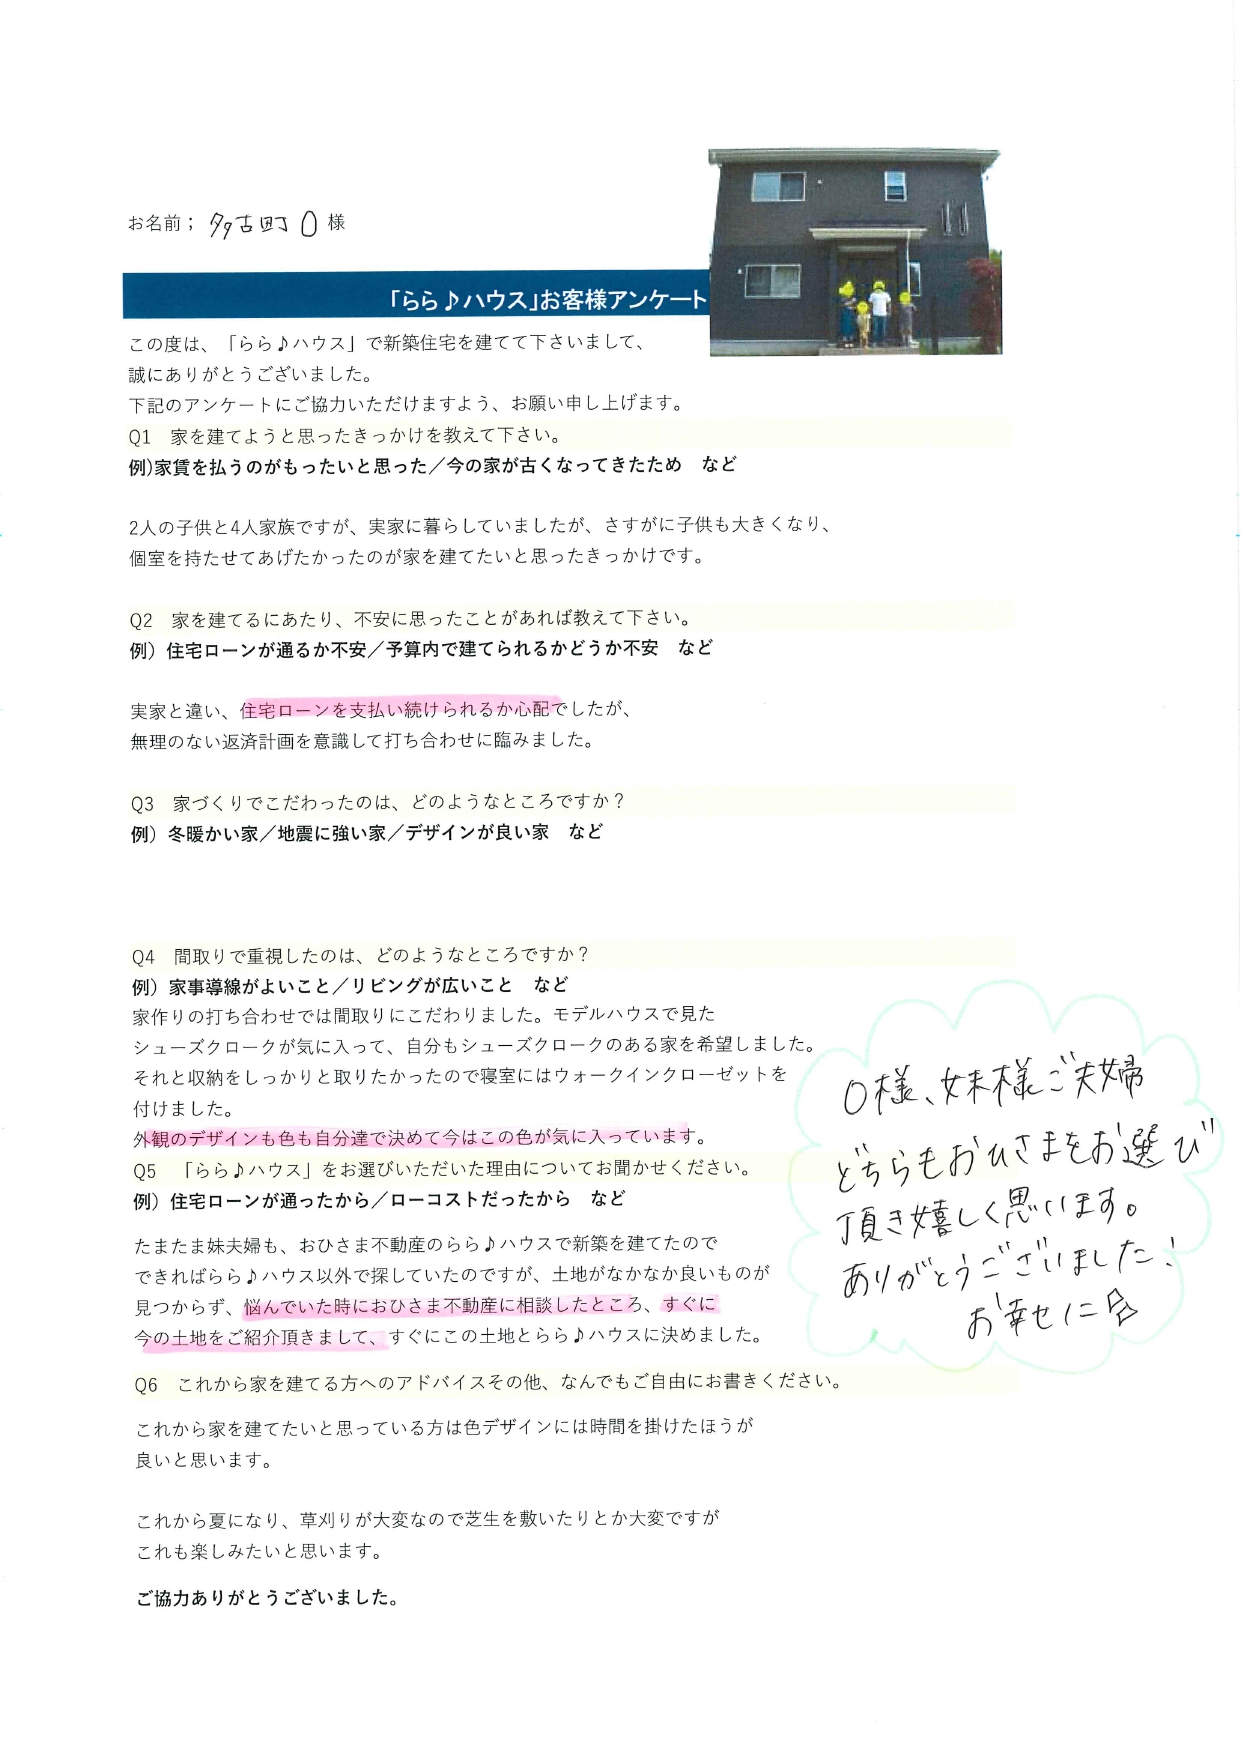 お名前； 多古町 O 様
「らら♪ハウス」お客様アンケート
この度は、「らら♪ハウス」で新築住宅を建てて下さいまして、
誠にありがとうございました。
下記のアンケートにご協力いただけますよう、お願い申し上げます。
Q1　家を建てようと思ったきっかけを教えて下さい。
例)家賃を払うのがもったいと思った／今の家が古くなってきたため　など
2人の子供と4人家族ですが、実家に暮らしていましたが、さすがに子供も大きくなり、
個室を持たせてあげたかったのが家を建てたいと思ったきっかけです。
Q2　家を建てるにあたり、不安に思ったことがあれば教えて下さい。
例）住宅ローンが通るか不安／予算内で建てられるかどうか不安　など
実家と違い、住宅ローンを支払い続けられるか心配でしたが、
無理のない返済計画を意識して打ち合わせに臨みました。
Q3　家づくりでこだわったのは、どのようなところですか？
例）冬暖かい家／地震に強い家／デザインが良い家　など
Q4　間取りで重視したのは、どのようなところですか？
例）家事導線がよいこと／リビングが広いこと　など
家作りの打ち合わせでは間取りにこだわりました。モデルハウスで見た
シューズクロークが気に入って、自分もシューズクロークのある家を希望しました。
それと収納をしっかりと取りたかったので寝室にはウォークインクローゼットを
付けました。
外観のデザインも色も自分達で決めて今はこの色が気に入っています。
Q5　「らら♪ハウス」をお選びいただいた理由についてお聞かせください。
例）住宅ローンが通ったから／ローコストだったから　など
たまたま妹夫婦も、おひさま不動産のらら♪ハウスで新築を建てたので
できればらら♪ハウス以外で探していたのですが、土地がなかなか良いものが
見つからず、悩んでいた時におひさま不動産に相談したところ、すぐに
今の土地をご紹介頂きまして、すぐにこの土地とらら♪ハウスに決めました。
Q6　これから家を建てる方へのアドバイスその他、なんでもご自由にお書きください。
これから家を建てたいと思っている方は色デザインには時間を掛けたほうが
良いと思います。
これから夏になり、草刈りが大変なので芝生を敷いたりとか大変ですが
これも楽しみたいと思います。
ご協力ありがとうございました。
O様、妹様ご夫婦
どちらもおひさまをお選び
頂き嬉しく思います。
ありがとうございました！
お幸せに